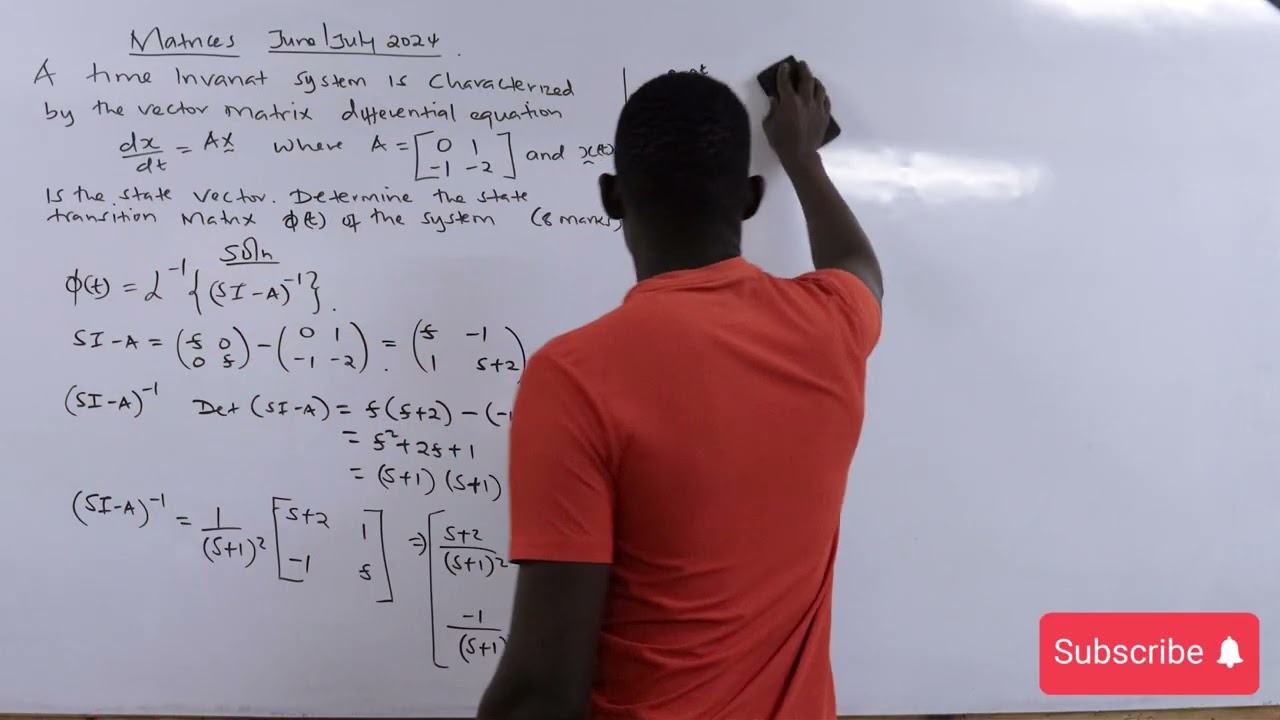 Matrices June/July 2024.
A time Invanat system is characterized
by the vector matrix differential equation
dx/dt = Ax where A = [0 1 -1 -2] and x(t)
Is the state vector. Determine the state
transition Matrx ϕ(t) of the system (8 marks)
Soln
ϕ(t) = L⁻¹{(SI-A)⁻¹}.
SI-A = (s 0 0 s) - (0 1 -1 -2) = (s -1 1 s+2)
(SI-A)⁻¹ Det (SI-A) = s(s+2) - (-1
= s²+2s+1
= (s+1)(s+1)
(SI-A)⁻¹ = 1/(s+1)² [s+2 1 -1 s] ⇒ [s+2/(s+1)² -1/(s+1)
Subscribe